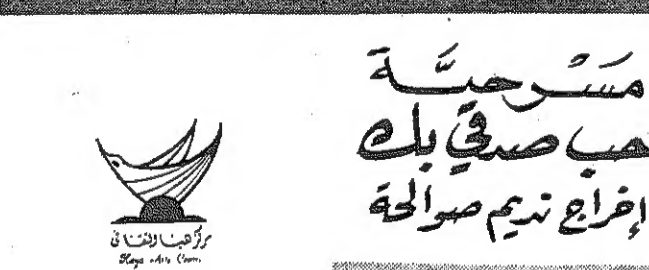 مَسْرحيَّة
صدقي بك
إخراج نديم صوالحة
مركز هيا الثقافي
Haya Arts